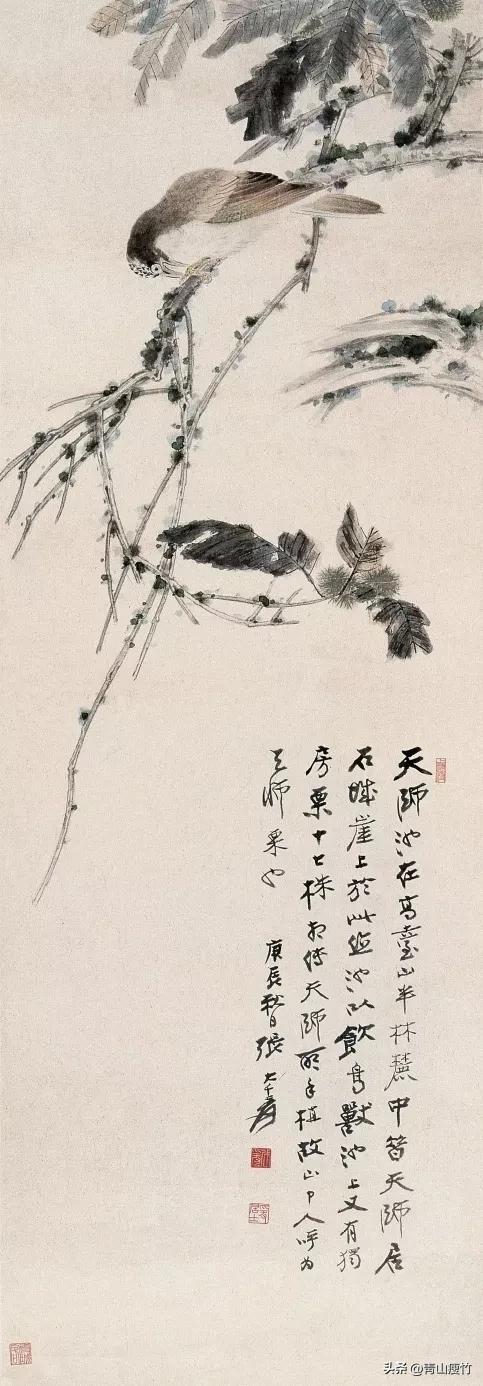 天師池在高臺山半林麓中昔天師居
石城崖上於此池以飲鳥獸池上又有獨
房栗十七株相傳天師所手植故山中人呼為
天師栗也
庚辰秋日張大千爰
头条 @青山瘦竹